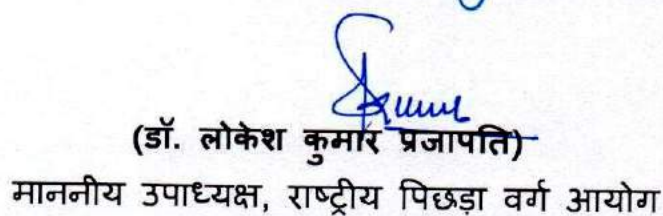 (डॉ. लोकेश कुमार प्रजापति)
माननीय उपाध्यक्ष, राष्ट्रीय पिछड़ा वर्ग आयोग